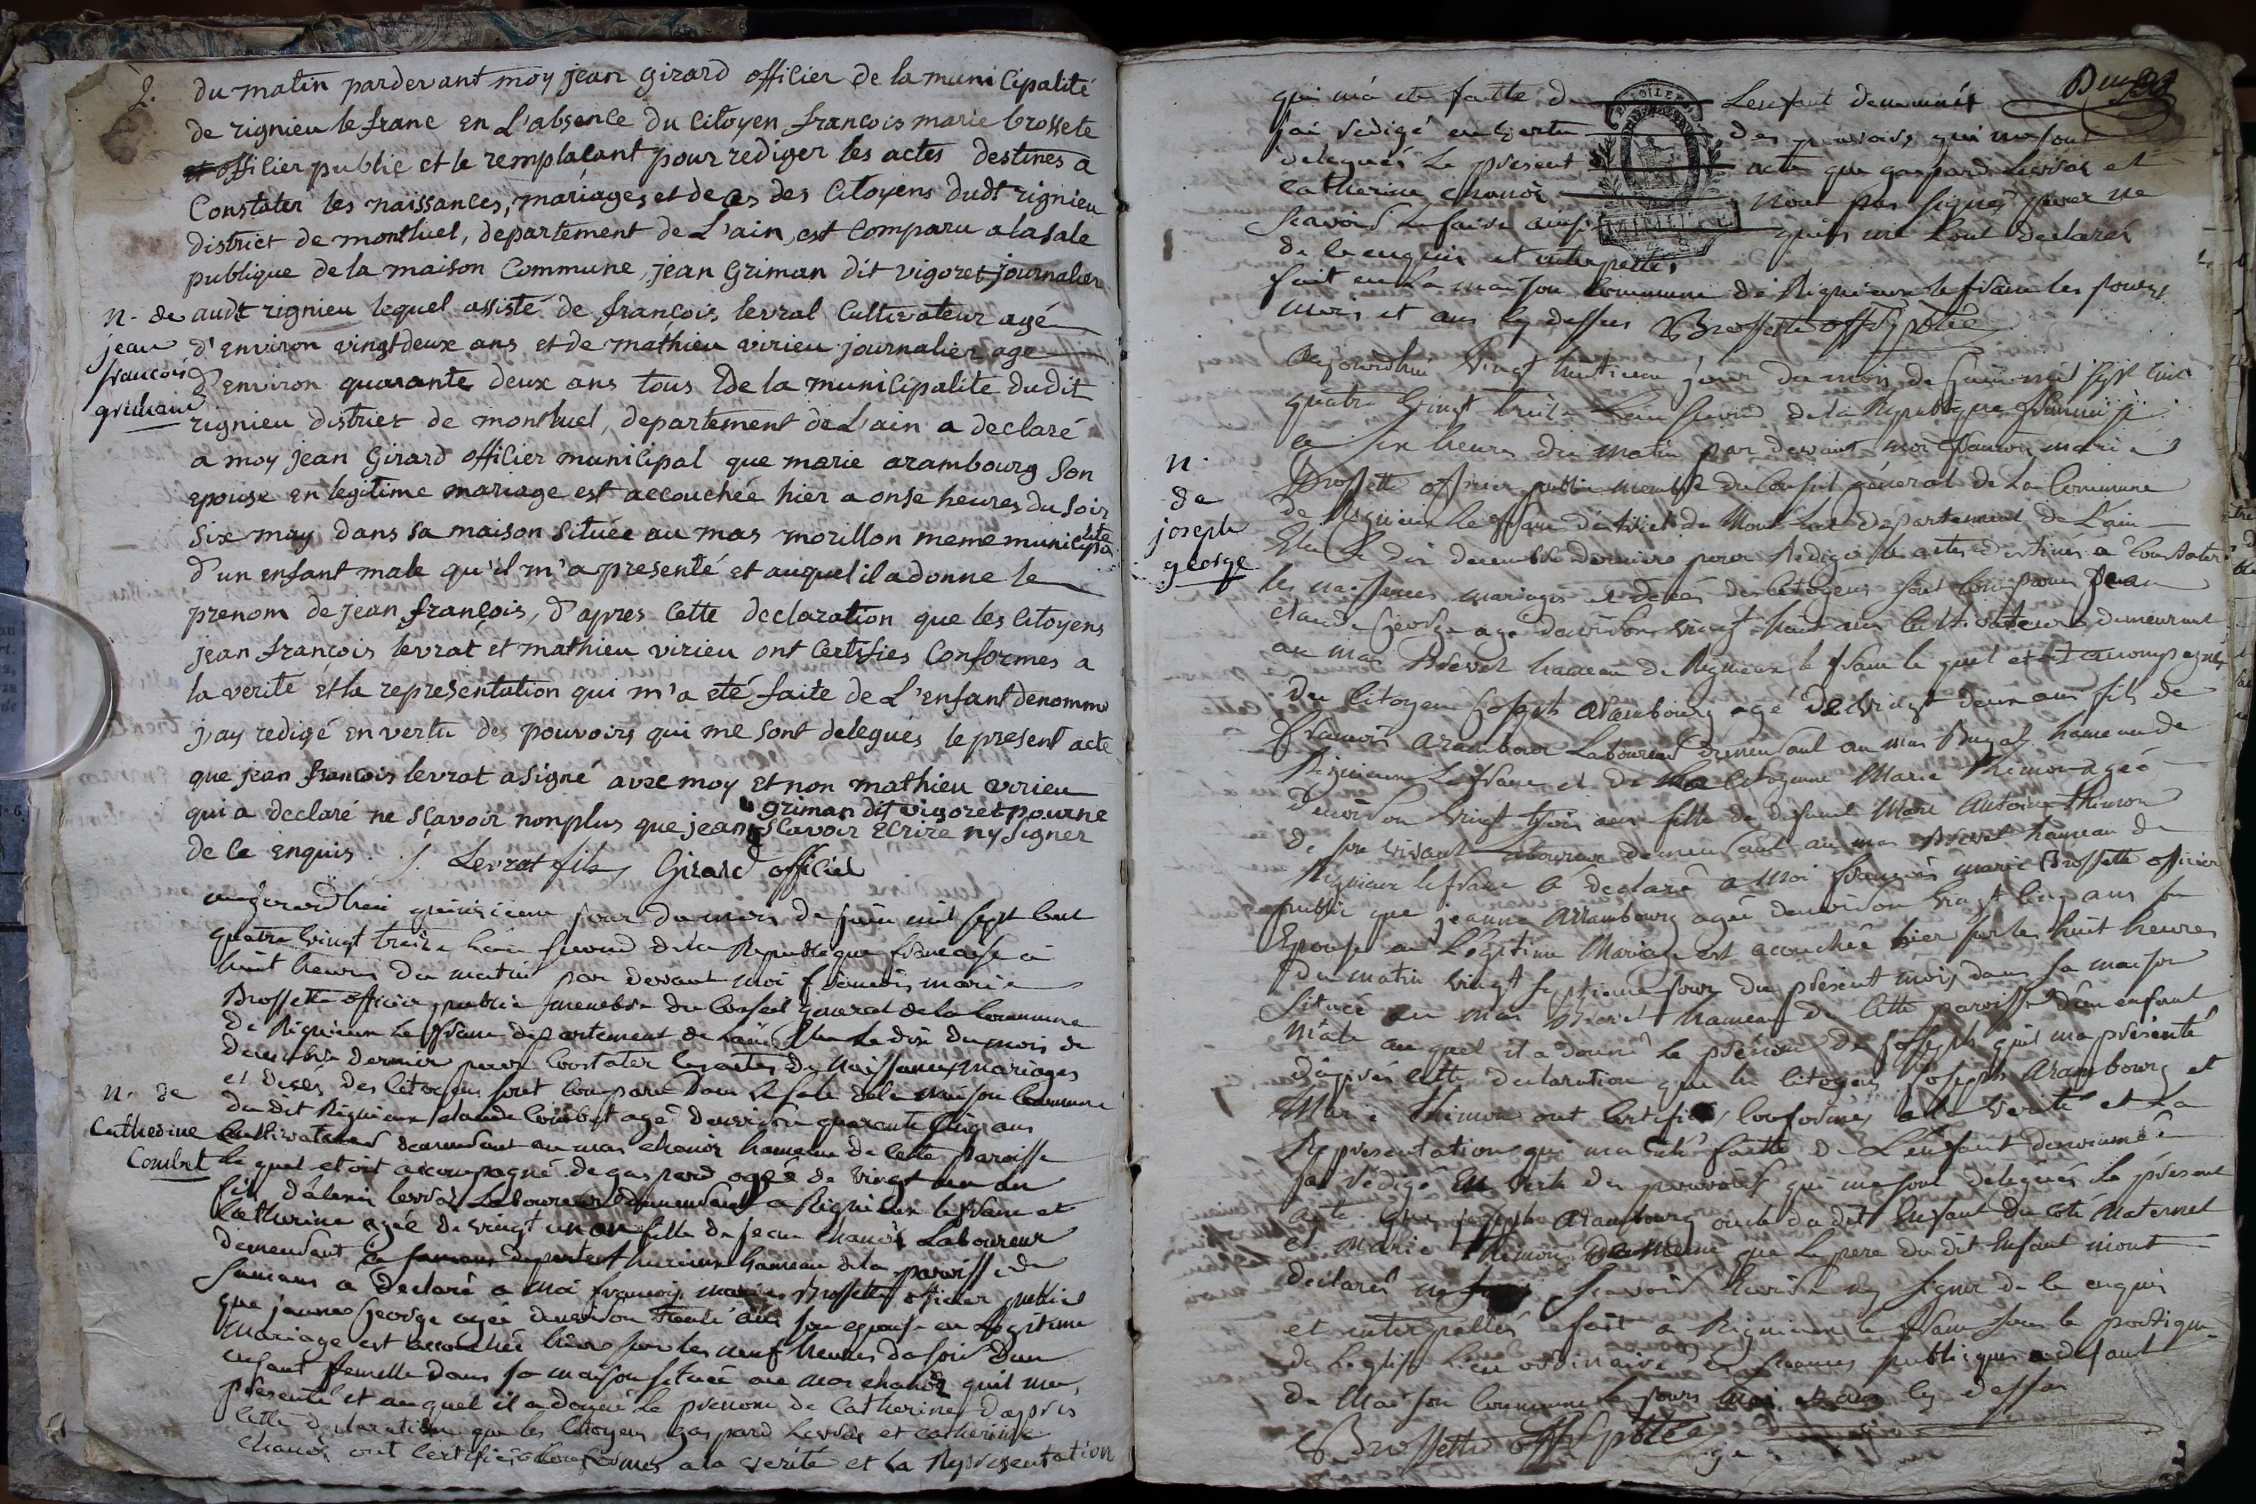 2.
du matin pardevant moy jean girard officier de la municipalité
de rignieu le franc en L'absence du citoyen francois marie brossete
et officier public et le remplacant pour rediger les actes destines a
Constater les naissances, mariages et deces des Citoyens dudt rignieu
district de montluel, departement de L'ain, est Comparu a la sale
publique de la maison Commune, jean Griman dit vigoret journalier
n. de
jean
francois
grimand
audt rignieu lequel assisté de francois levrat Cultivateur agé
d'environ vingt deux ans et de mathieu virieu journalier age
d'environ quarante deux ans tous 2 de la municipalite dudit
rignieu district de montluel, departement de L'ain a declaré
a moy jean Girard officier municipal que marie arambourg son
epouse en legitime mariage est accouchée hier a onse heures du soir
six may dans sa maison située au mas morillon meme municipalite
d'un enfant male qu'il m'a presenté et auquel il a donne le
prenom de jean françois, d'apres Cette declaration que les Citoyens
jean françois levrat et mathieu virieu ont Certifies Conformes a
la verite et la representation qui m'a eté faite de L'enfant denomme
j'ay redigé en vertu des pouvoirs qui me sont delegués le present acte
que jean francois levrat a signé avec moy et non mathieu virieu
qui a declaré ne scavoir non plus que jean griman dit vigoret pour ne
scavoir ecrire ny signer
de ce enquis. J. Levrat fils Girard officier
aujourdhui quinzieme jour du mois de juin mil sept cent
quatre vingt treize Lan second de la Republique francaise a
huit heures du matin par devant moi francois marie
Brossette officier public membre du Conseil general de la Commune
de Rignieux le franc departement de Lain Elu le dix du mois de
decembre dernier pour Constater les actes de Naissances mariages
et décés des Citoyens sont comparu dans la sale de la maison Commune
n. de
Catherine
Combet
du dit Rignieux claude Combet agé denviron quarante cinq ans
Cultivateur demeurant au mas chanoz hameau de cette paroisse
le quel etoit accompagné de gaspard agée de vingt un an
fis levrat Laboureur demeurant a Rignieux le franc et
Catherine agée de vingt un an fille de jean chanoz Laboureur
demeurant hameau de la paroisse de
a declaré a moi francois marie Brossette officier public
que jeanne George agée denviron trente ans son epouse en Legitime
mariage est accouchée hier sur les neuf heures du soir d'un
enfant femelle dans sa maison située au mas chanoz quil ma
présenté et auquel il a donné le prenom de Catherine d'apres
cette declaration que les Citoyens gaspard Levrat et catherine
chanoz ont certifiés conformes a la verité et la Representation
qui má ete faitte de Lenfant denommée
jai rédigé en vertu des pouvoirs qui me sont
delegués le present acte que gaspard Levrat et
Catherine chanoz nont pas signés pour ne
scavoir le faire ainsi quils me lont declarés
de ce enquis et interpellés
fait en La maison Commune de Rignieux le franc les jours
mois et ans cy dessus Brossette off. pblic
n.
de
joseph
george
Aujourdhui Vingt huitieme jour du mois de juin mil sept cent
quatre Vingt treize Lan second de la Republique francaise
a six heures du matin par devant moi francois marie
Brossette officier public membre du Conseil général de La Commune
de Rignieux Le franc district de Montluel departement de Lain
Elu le dix decembre derniere pour Rédiger les actes destinés a Constater
les naissances mariages et décés des Citoyens sont comparus Jean
claude George agé denviron vingt huit ans Cultivateur demeurant
au mas Brevet hameau de Rignieux le franc le quel etoit accompagné
du Citoyen Joseph Arambourg agé de vingt deux ans fils de
francois Arambour Laboureur demeurant au mas hameau de
Rignieux Le franc et de la citoyenne Marie Thimon agée
denviron Vingt trois ans fille de defunt Marc Antoine Thimon
de son vivant Laboureur demeurant au mas Brevet hameau de
Rignieux le franc a declaré a Moi francois marie Brossette officier
public que jeanne Arambourg agée denviron vingt cinq ans son
Epouse en Légitime Mariage est accouchée hier sur les huit heures
du matin vingt septieme jour du présent mois dans sa maison
située au mas Brevet hameau de cette paroisse d'un enfant
Mâle auquel il a donné le prénom de Joseph quil ma présenté
dapres cette declaration que les Citoyens Joseph Arambourg et
Marie Thimon ont Certifiés conformes a la Verité et La
Representation qui ma été faitte de Lenfant denommé
jai rédigé en vertu des pouvoirs qui me sont délegués le présent
acte que joseph Arambourg oncle du dit Enfant du coté Maternel
et Marie Thimon de meme que Le pere du dit Enfant n'iont
declarés ne Scavoir Ecrire ny signer de ce enquis
et interpellés fait a Rignieux le franc sous le portique
de Leglise Lieu ordinaire des séances publiques a defaut
de Maison Commune Le jours mois et an cy dessus
Brossette off pblic